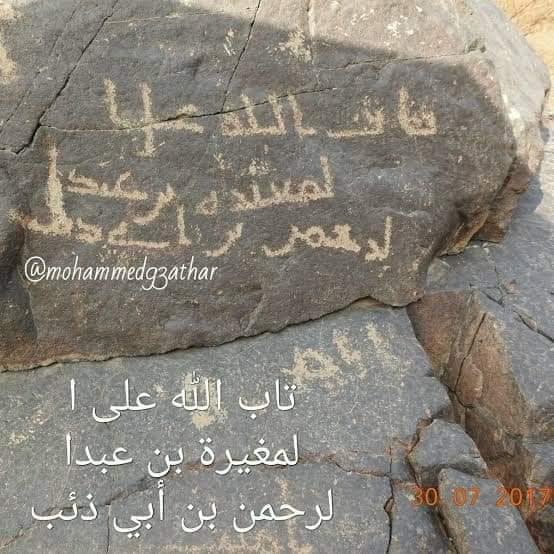 تاب الله علىا
لمغيره بن عبدا
لرحمن بن أبي ذئب
@mohammedg3athar
تاب الله على ا
لمغيرة بن عبدا
لرحمن بن أبي ذئب
30 07 2017